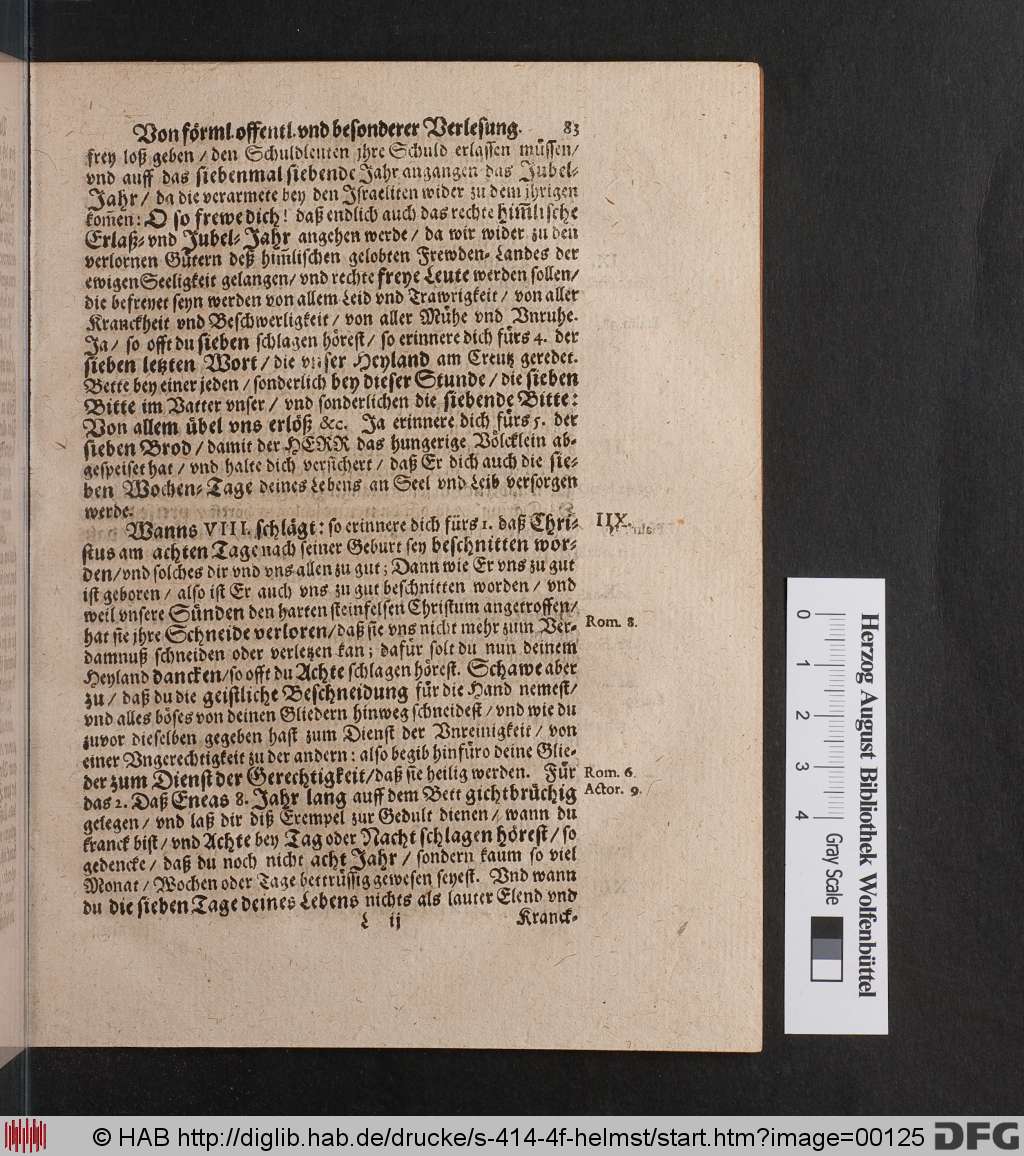 Von förml. offentl. vnd besonderer Verlesung. 83
frey loß geben / den Schuldleuten jhre Schuld erlassen müssen /
vnd auff das siebenmal siebende Jahr angangen das Jubel-
Jahr / da die verarmete bey den Israeliten wider zu dem jhrigen
kom̃en: O so frewe dich! daß endlich auch das rechte him̃lische
Erlaß- vnd Jubel-Jahr angehen werde / da wir wider zu den
verlornen Gütern deß him̃lischen gelobten Frewden-Landes der
ewigen Seeligkeit gelangen / vnd rechte freye Leute werden sollen /
die befreyet seyn werden von allem Leid vnd Trawrigkeit / von aller
Kranckheit vnd Beschwerligkeit / von aller Mühe vnd Vnruhe.
Ja / so offt du sieben schlagen hörest / so erinnere dich fürs 4. der
sieben letzten Wort / die vnser Heyland am Creutz geredet.
Bette bey einer jeden / sonderlich bey dieser Stunde / die sieben
Bitte im Vatter vnser / vnd sonderlichen die siebende Bitte:
Von allem übel vns erlöß &c. Ja erinnere dich fürs 5. der
sieben Brod / damit der HERR das hungerige Völcklein ab-
gespeiset hat / vnd halte dich versichert / daß Er dich auch die sie-
ben Wochen-Tage deines Lebens an Seel vnd Leib versorgen
werde.
Wanns VIII. schlägt: so erinnere dich fürs 1. daß Chri-
stus am achten Tage nach seiner Geburt sey beschnitten wor-
den / vnd solches dir vnd vns allen zu gut; Dann wie Er vns zu gut
ist geboren / also ist Er auch vns zu gut beschnitten worden / vnd
weil vnsere Sünden den harten steinfelsen Christum angetroffen /
hat sie jhre Schneide verloren / daß sie vns nicht mehr zum Ver-
damnuß schneiden oder verletzen kan; dafür solt du nun deinem
Heyland dancken / so offt du Achte schlagen hörest. Schawe aber
zu / daß du die geistliche Beschneidung für die Hand nemest /
vnd alles böses von deinen Gliedern hinweg schneidest / vnd wie du
zuvor dieselben gegeben hast zum Dienst der Vnreinigkeit / von
einer Vngerechtigkeit zu der andern: also begib hinfüro deine Glie-
der zum Dienst der Gerechtigkeit / daß sie heilig werden. Für
das 2. Daß Eneas 8. Jahr lang auff dem Bett gichtbrüchig
gelegen / vnd laß dir diß Exempel zur Gedult dienen / wann du
kranck bist / vnd Achte bey Tag oder Nacht schlagen hörest / so
gedencke / daß du noch nicht acht Jahr / sondern kaum so viel
Monat / Wochen oder Tage bettrüssig gewesen seyest. Vnd wann
du die sieben Tage deines Lebens nichts als lauter Elend vnd
L ij Kranck-
IIX.
Rom. 8.
Rom. 6.
Actor. 9.
0 1 2 3 4
Gray Scale
Herzog August Bibliothek Wolfenbüttel
© HAB http://diglib.hab.de/drucke/s-414-4f-helmst/start.htm?image=00125 DFG